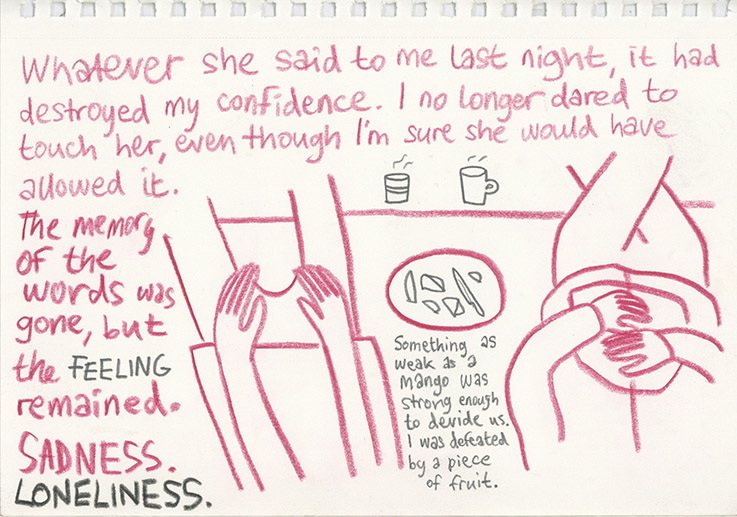 Whatever she said to me last night, it had
destroyed my confidence. I no longer dared to
touch her, even though I'm sure she would have
allowed it.
The memory
of the
words was
gone, but
the FEELING
remained.
SADNESS.
LONELINESS.
Something as
weak as a
mango was
strong enough
to devide us.
I was defeated
by a piece
of fruit.